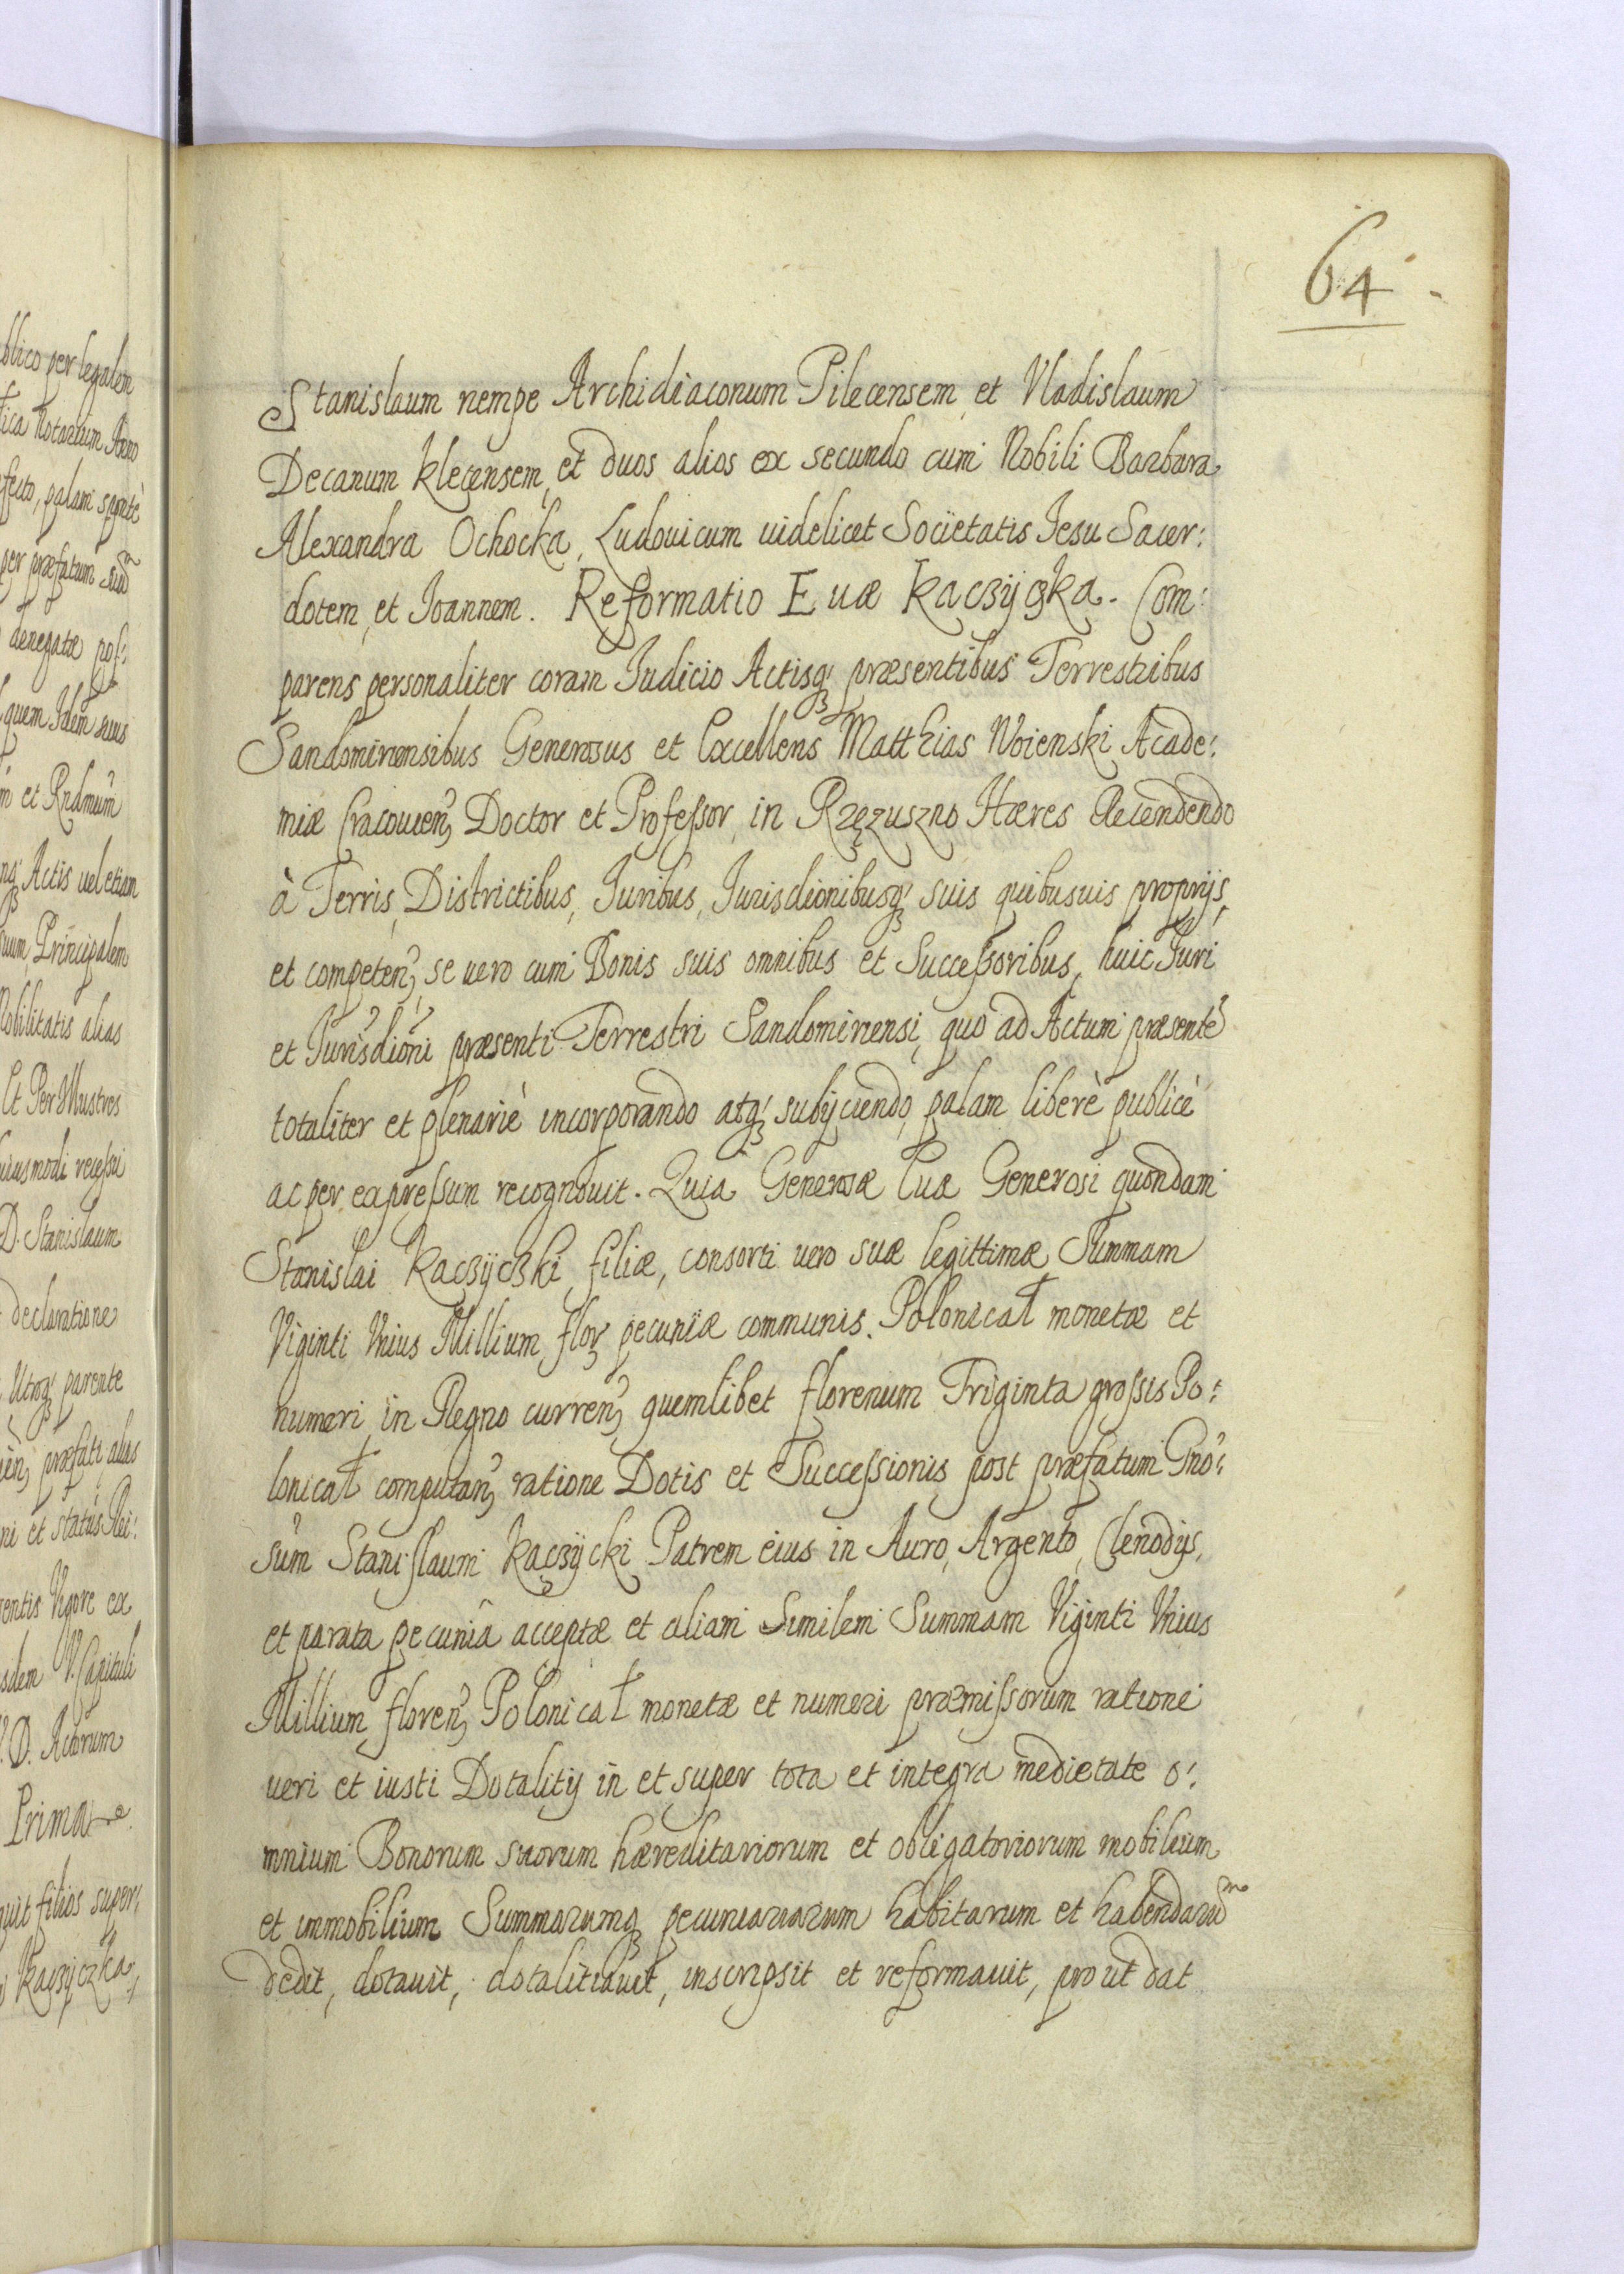 64.
Stanislaum nempe Archidiaconum Pilecensem, et Vladislaum
Decanum Klecensem, et duos alios ex secundo cum Nobili Barbara
Alexandra Ochocka, Ludouicum uidelicet Societatis Iesu Sacer:
dotem, et Ioannem. Reformatio Euæ Kaczÿczka. Com:
parens personaliter coram Iudicio Actisq3 præsentibus Terrestribus
Sandomiriensibus Generosus et Excellens Matthias Woienski Acade:
miæ Cracouien3 Doctor et Professor, in Rzęzuszno Hæres Recendendo
à Terris, Districtibus, Iuribus, Iurisdionibusq3 suis quibusuis proprijs,
et competen3, se uero cum Bonis suis omnibus et Successoribus, huic Iuri
et Iurisdioni præsenti Terrestri Sandomiriensi, quo ad Actum præsente
totaliter et plenariè incorporando atq3 subijciendo, palam liberè publicè
ac per expressum recognouit. Quia Generosæ Euæ Generosi quondam
Stanislai Kaczÿczki filiæ, consorti uero suæ legittimæ Summam
Viginti Vnius Millium flor pecuniæ communis. Polonical monetæ et
numeri in Regno curren3 quemlibet florenum Triginta grossis Po:
lonical computan3 ratione Dotis et Successionis post præfatum Gno:
sum Stanislaum Kaczÿcki Patrem eius in Auro, Argento, Clenodijs,
et parata pecuniâ acceptæ et aliam Similem Summam Viginti Vnius
Millium floren3 Polonical monetæ et numeri præmissorum ratione
ueri et iusti Dotalitij in et super tota et integra medietate o:
mnium Bonorum suorum hæreditariorum et obligatoriorum mobilium
et immobilium Summarumq3 pecuniariarum habitarum et habendaru
dedit, dotauit, dotalitiauit, inscripsit et reformauit, prout dat
blico per legalem
tica Notarium
palam
per præfatum
denegatæ pos:
quem Idem suus
et Rndmum
Actis uel etiam
suum, Principalem
Nobilitatis alias
Et Per Illustres
recessu
D. Stanislaum
declaratione
Utroq3 parente
præfati, alias
ni et status Rei:
Vigore ex
V. Capituli
D. Actorum
Prima
filios super:
Kaczÿczka